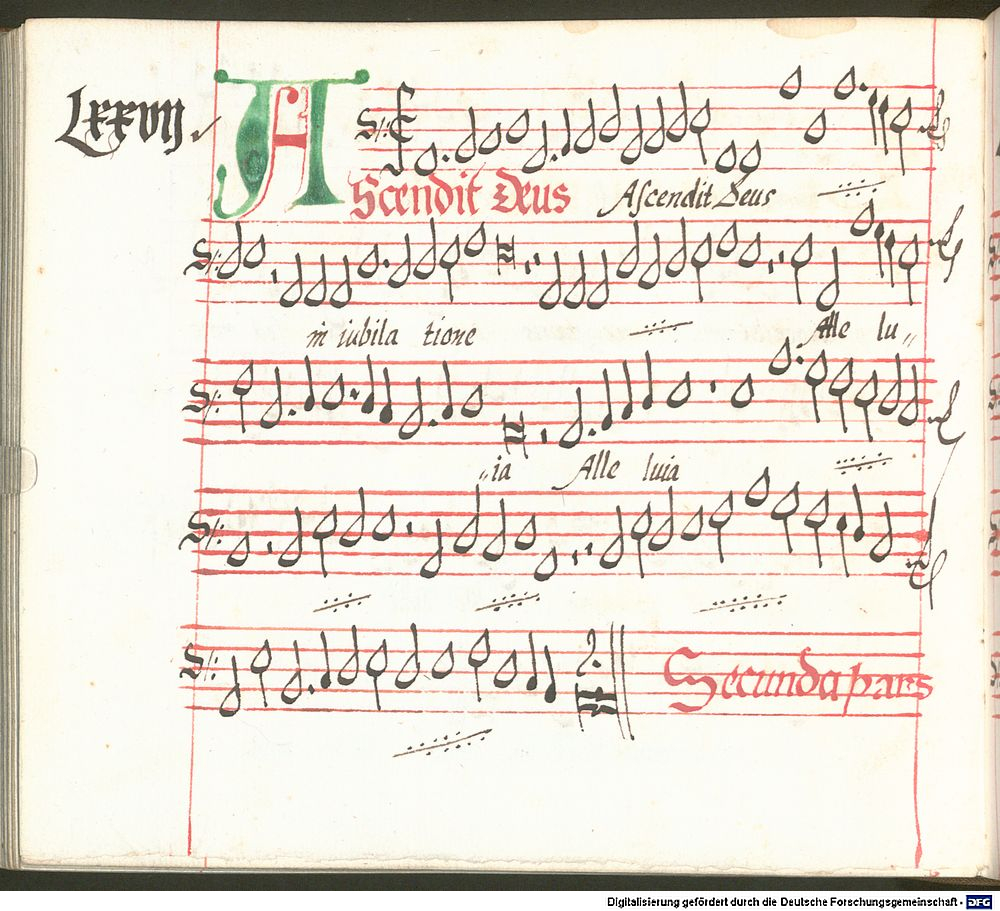 Lxxvij
AScendit Deus Ascendit Deus
in iubila tione Alle lu„
„ia Alle luia
Secunda pars
Digitalisierung gefördert durch die Deutsche Forschungsgemeinschaft - DFG